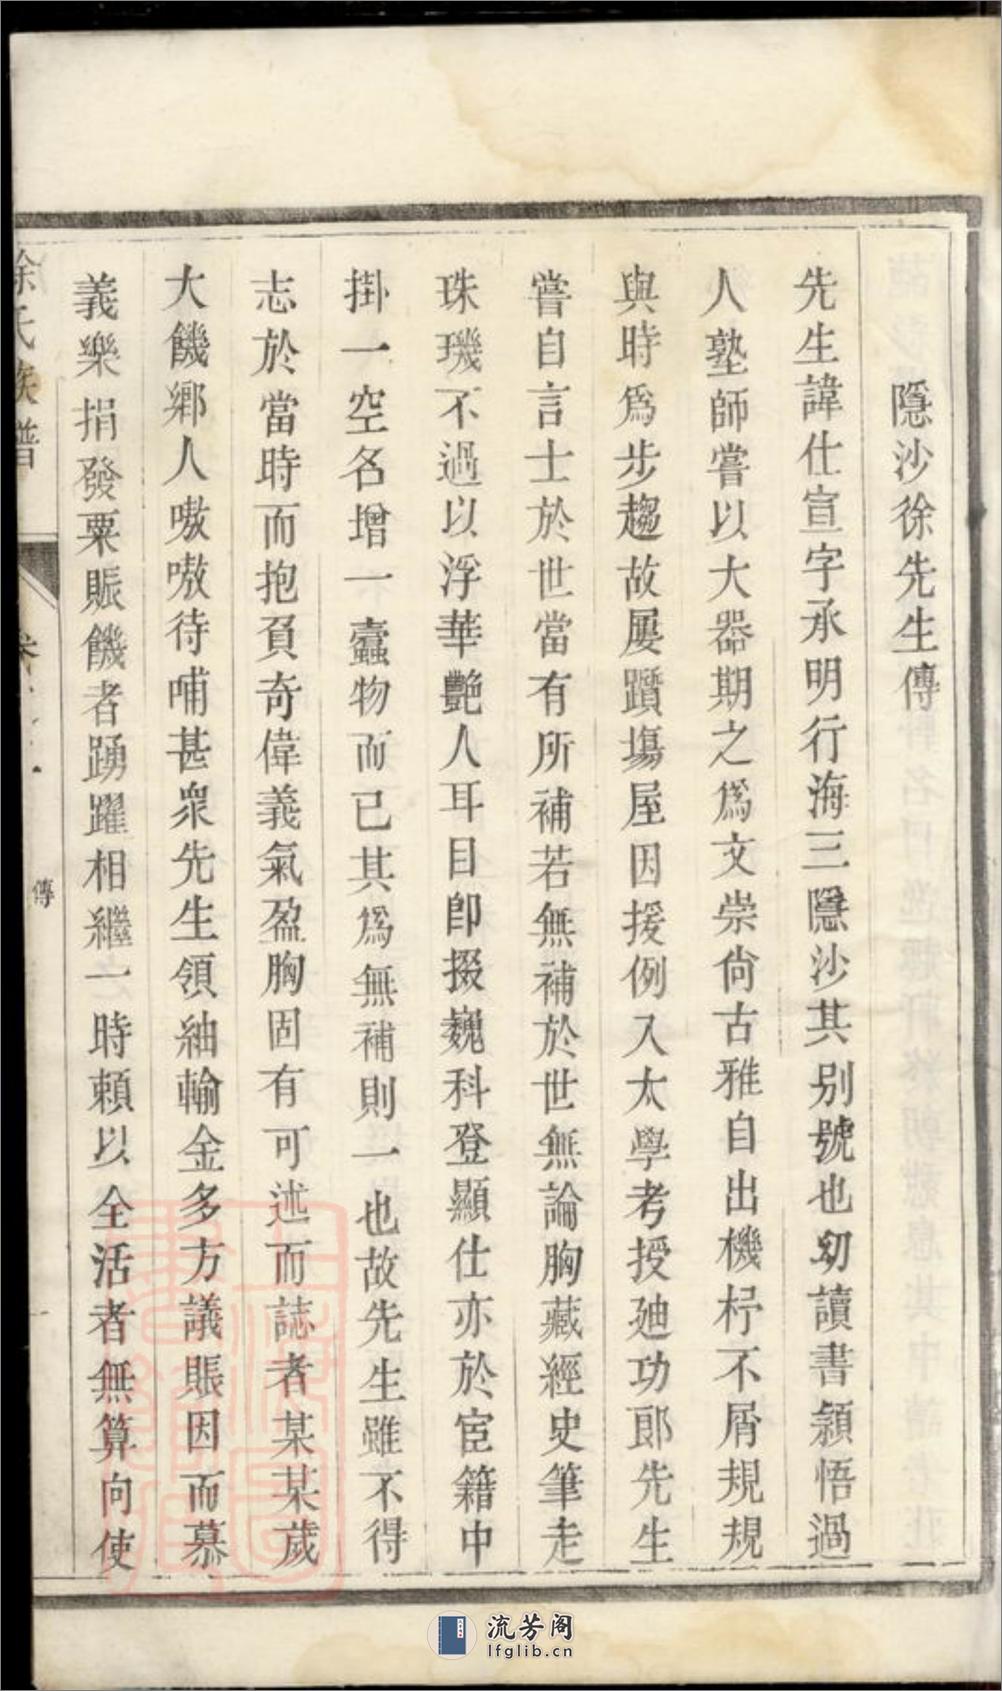 隱沙徐先生傳
先生諱仕宣字承明行海三隱沙其別號也幼讀書潁悟過
人塾師嘗以大器期之爲文崇尙古雅自出機杼不屑規規
與時爲步趨故屢躓塲屋因援例入太學考授廸功郎先生
嘗自言士於世當有所補若無補於世無論胸藏經史筆走
珠璣不過以浮華艷人耳目卽掇巍科登顯仕亦於宦籍中
掛一空名增一蠹物而已其爲無補則一也故先生雖不得
志於當時而抱負奇偉義氣盈胸固有可述而誌者某某歲
大饑鄉人嗷嗷待哺甚衆先生領紬輸金多方議賑因而慕
義樂捐發粟賑饑者踴躍相繼一時賴以全活者無算向使
徐氏族譜
傳
流芳阁
lfglib.cn